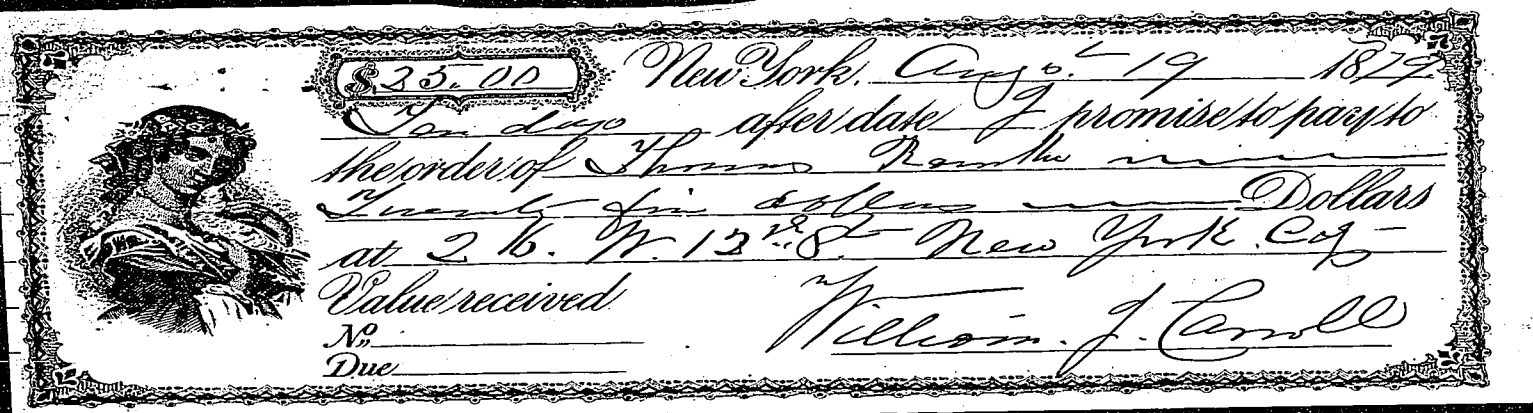 $25.00 New York. Augst 19 1879
Ten days after date I promise to pay to
the order of Thomas
Twenty five dollars Dollars
at 26. W. 13th St New York City
Value received
No.
Due
William. J. Carroll